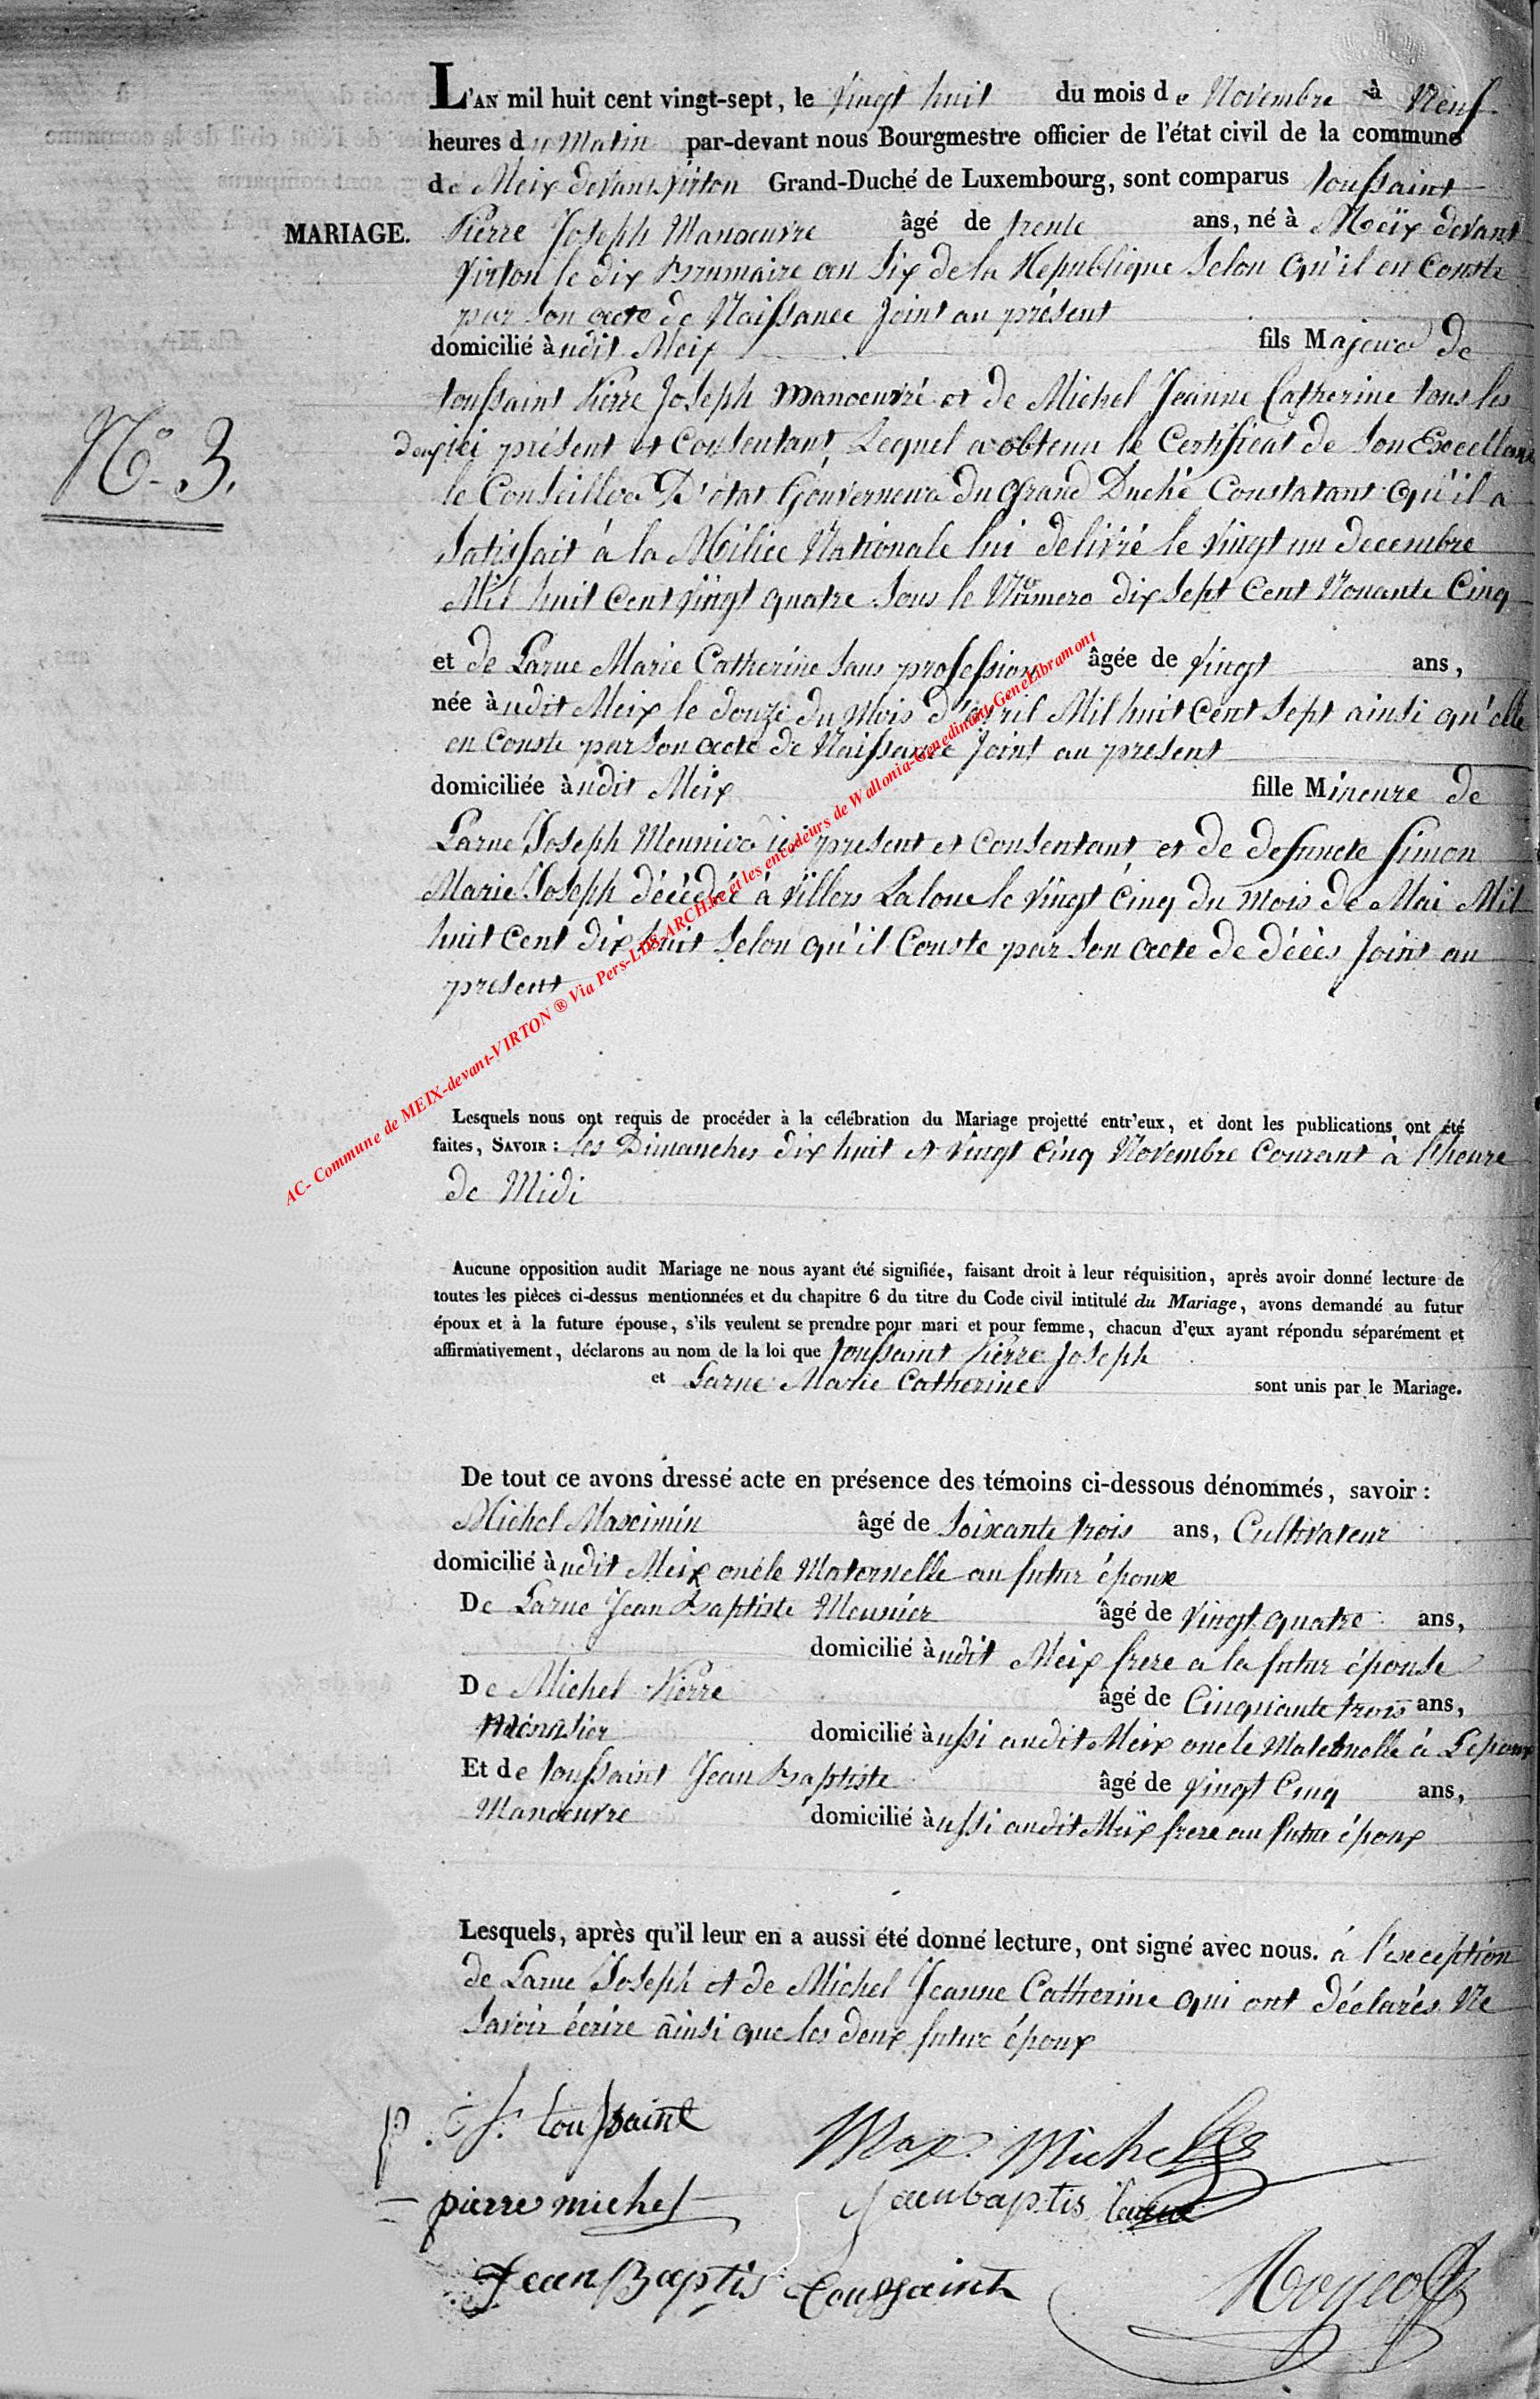 L'AN mil huit cent vingt-sept, le Vingt huit du mois de Novembre à Neuf
heures du Matin par-devant nous Bourgmestre officier de l'état civil de la commune
de Meix devant Virton Grand-Duché de Luxembourg, sont comparus toussaint
MARIAGE.
Pierre Joseph Manoeuvre âgé de trente ans, né à Meïx devant
Virton le dix Brumaire an Six de la Republique Selon qu'il en Conste
par Son acte de Naissance Joint au présent
domicilié àudit Meix fils Majeur de
toussaint Pierre Joseph manoeuvré et de Michel Jeanne Catherine tous les
N.º 3.
deux ici présent et Consentant, Lequel a obtenu le Certificat de Son Excellence
le Conseiller D'état Gouverneur du Grand Duché Constatant qu'il a
Satisfait à la Milice Nationale lui delivré le vingt un decembre
Mil huit Cent Vingt quatre Sous le Numero dix Sept Cent Nonante Cinq
et de Larue Marie Catherine Sans profession âgée de Vingt ans,
née àudit Meix le douze du Mois d'avril Mil huit Cent Sept ainsi qu'elle
en Conste par Son acte de Naissance Joint au present
domiciliée àudit Meix fille Mineure de
Larue Joseph Meunier ici present et Consentant et de defuncte Simon
Marie Joseph décédée à Villers Laloue le Vingt Cinq du Mois de Mai Mil
huit Cent dix huit Selon qu'il Conste par Son acte de décès Joint au
present
AC- Commune de MEIX-devant-VIRTON ® Via Pers-LDS-ARCH.be et les encodeurs de Wallonia-Genedinant-GeneLibramont
Lesquels nous ont requis de procéder à la célébration du Mariage projetté entr'eux, et dont les publications ont été
faites, SAVOIR : les Dimanches dix huit et Vingt Cinq Novembre Courant à l'heure
de Midi
Aucune opposition audit Mariage ne nous ayant été signifiée, faisant droit à leur réquisition, après avoir donné lecture de
toutes les pièces ci-dessus mentionnées et du chapitre 6 du titre du Code civil intitulé du Mariage, avons demandé au futur
époux et à la future épouse, s'ils veulent se prendre pour mari et pour femme, chacun d'eux ayant répondu séparément et
affirmativement, déclarons au nom de la loi que Toussaint Pierre Joseph
et Larue Marie Catherine sont unis par le Mariage.
De tout ce avons dressé acte en présence des témoins ci-dessous dénommés, savoir :
Michel Maximin âgé de Soixante trois ans, Cultivateur
domicilié àudit Meix oncle Maternelle au futur époux
De Larue Jean Baptiste Meunier âgé de Vingt quatre ans,
domicilié àudit Meix frere a la futur épouse
De Michel Pierre âgé de Cinquante trois ans,
Ménusier domicilié àussi audit Meix oncle Maternelle à L'epoux
Et de toussaint Jean Baptiste âgé de vingt Cinq ans,
Manoeuvre domicilié àussi audit Meïx frere au futur époux
Lesquels, après qu'il leur en a aussi été donné lecture, ont signé avec nous. à l'exception
de Larue Joseph et de Michel Jeanne Catherine qui ont déclarés Ne
Savoir écrire ainsi que les deux future époux
toussaint
Max. Michel
pierre michel
Jaenbaptis larue
Jean Baptis Toussaint